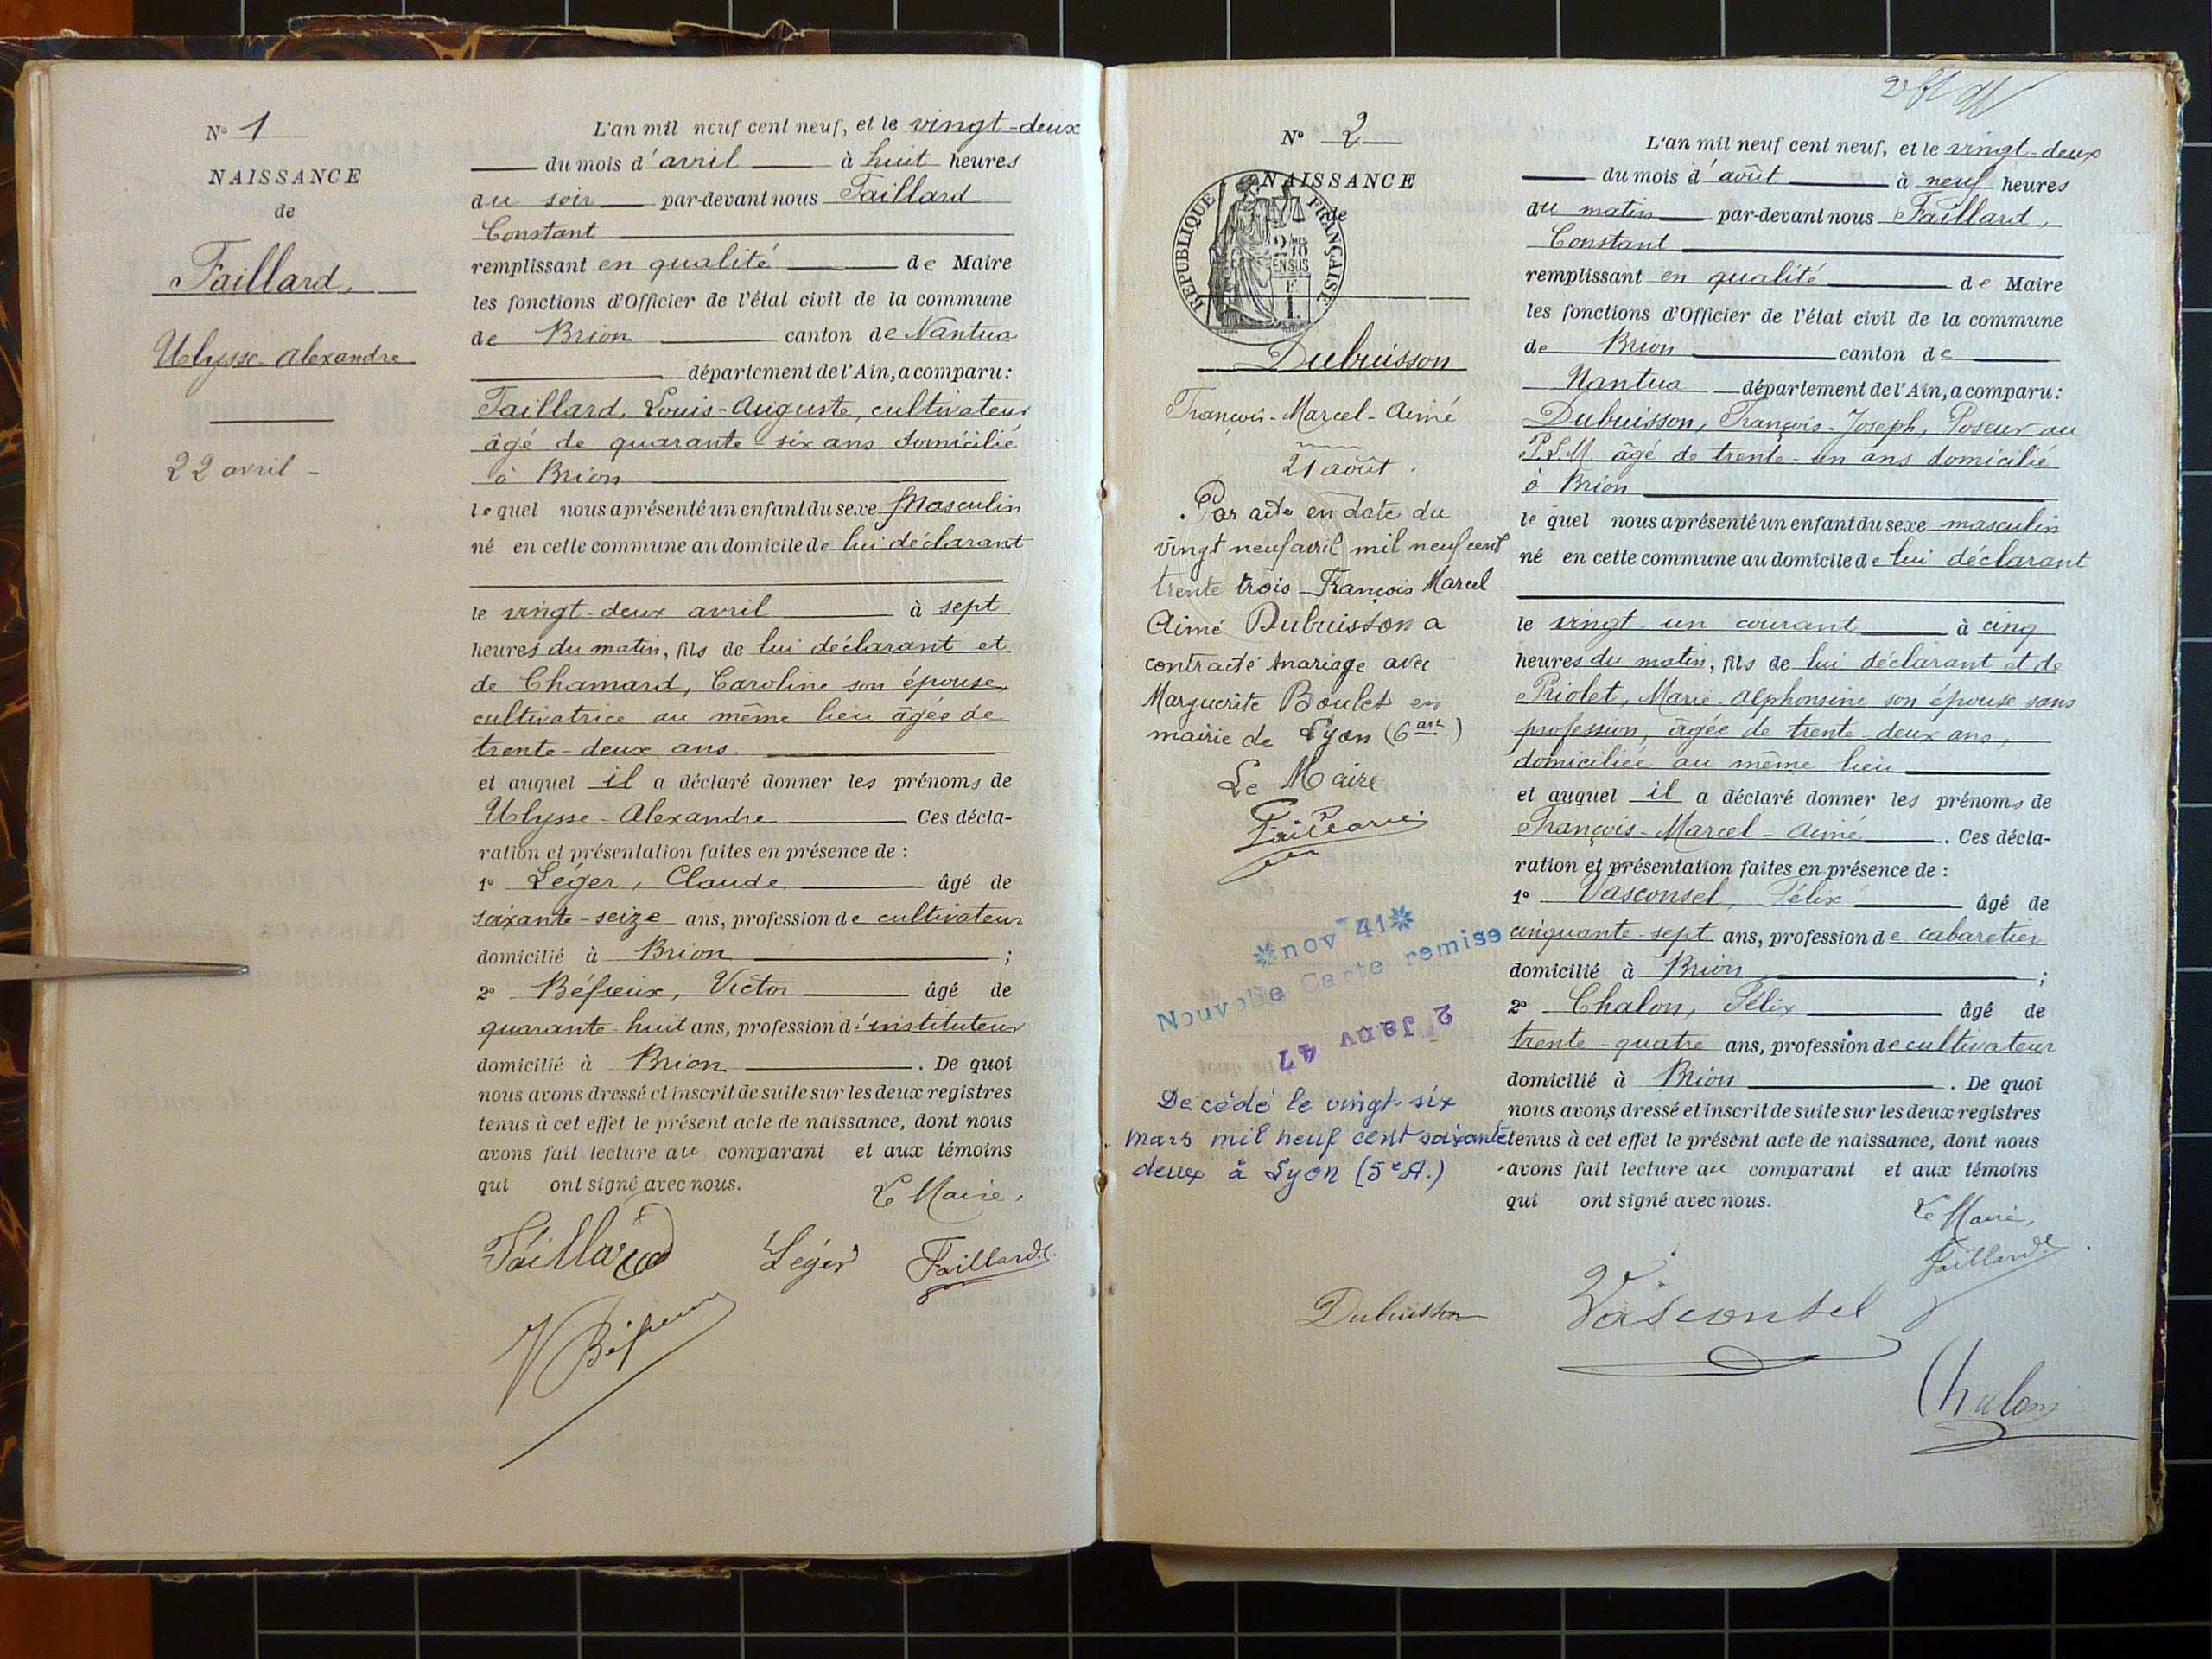 N° 1
NAISSANCE
de
Taillard,
Ulysse-Alexandre
22 avril -
L'an mil neuf cent neuf, et le vingt-deux
du mois d'avril à huit heures
du soir par-devant nous Taillard
Constant
remplissant en qualité de Maire
les fonctions d'Officier de l'état civil de la commune
de Brion canton de Nantua
département de l'Ain, a comparu:
Taillard, Louis-Auguste, cultivateur
âgé de quarante-six ans domicilié
à Brion
lequel nous a présenté un enfant du sexe Masculin
né en cette commune au domicile de lui déclarant
le vingt-deux avril à sept
heures du matin, fils de lui déclarant et
de Chamard, Caroline son épouse,
cultivatrice au même lieu âgée de
trente-deux ans.
et auquel il a déclaré donner les prénoms de
Ulysse-Alexandre Ces décla-
ration et présentation faites en présence de :
1° Léger, Claude âgé de
soixante-seize ans, profession de cultivateur
domicilié à Brion ;
2° Béfieux, Victor âgé de
quarante-huit ans, profession d'instituteur
domicilié à Brion . De quoi
nous avons dressé et inscrit de suite sur les deux registres
tenus à cet effet le présent acte de naissance, dont nous
avons fait lecture au comparant et aux témoins
qui ont signé avec nous.
Le Maire,
Taillard Léger Taillard C.
N° 2
NAISSANCE
de
RÉPUBLIQUE FRANÇAISE
2/10 EN SUS
Dubuisson
François-Marcel-Aimé
21 août.
Par acte en date du
vingt neuf avril mil neuf cent
trente trois François Marcel
Aimé Dubuisson a
contracté mariage avec
Marguerite Boulet en
mairie de Lyon (6 art)
Le Maire
*nov 41*
Nouvelle Carte remise
2 Janv 47
Decédé le vingt-six
mars mil neuf cent soixante
deux à Lyon (5e A.)
L'an mil neuf cent neuf, et le vingt-deux
du mois d'août à neuf heures
du matin par-devant nous Taillard,
Constant
remplissant en qualité de Maire
les fonctions d'Officier de l'état civil de la commune
de Brion canton de
Nantua département de l'Ain, a comparu:
Dubuisson, François-Joseph, Poseur au
P.L.M. âgé de trente-un ans domicilié
à Brion
lequel nous a présenté un enfant du sexe masculin
né en cette commune au domicile de lui déclarant
le vingt-un courant à cinq
heures du matin, fils de lui déclarant et de
Priolet, Marie-Alphonsine son épouse sans
profession, âgée de trente-deux ans,
domiciliée au même lieu
et auquel il a déclaré donner les prénoms de
François-Marcel-Aimé . Ces décla-
ration et présentation faites en présence de :
1° Vasconsel, Félix âgé de
cinquante-sept ans, profession de cabaretier
domicilié à Brion ;
2° Chalon, Félix âgé de
trente-quatre ans, profession de cultivateur
domicilié à Brion . De quoi
nous avons dressé et inscrit de suite sur les deux registres
tenus à cet effet le présent acte de naissance, dont nous
avons fait lecture au comparant et aux témoins
qui ont signé avec nous.
Le Maire,
Taillard C.
Dubuisson Vasconsel
Chalon